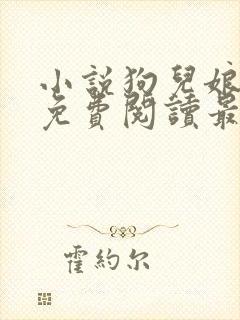 小說狗兒娘
免費閱讀最
霍約尔